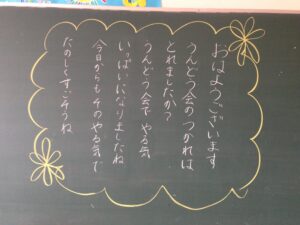 おはようございます
うんどう会のつかれは
とれましたか?
うんどう会で やる気
いっぱいになりましたね
今日からもそのやる気で
たのしくすごそうね